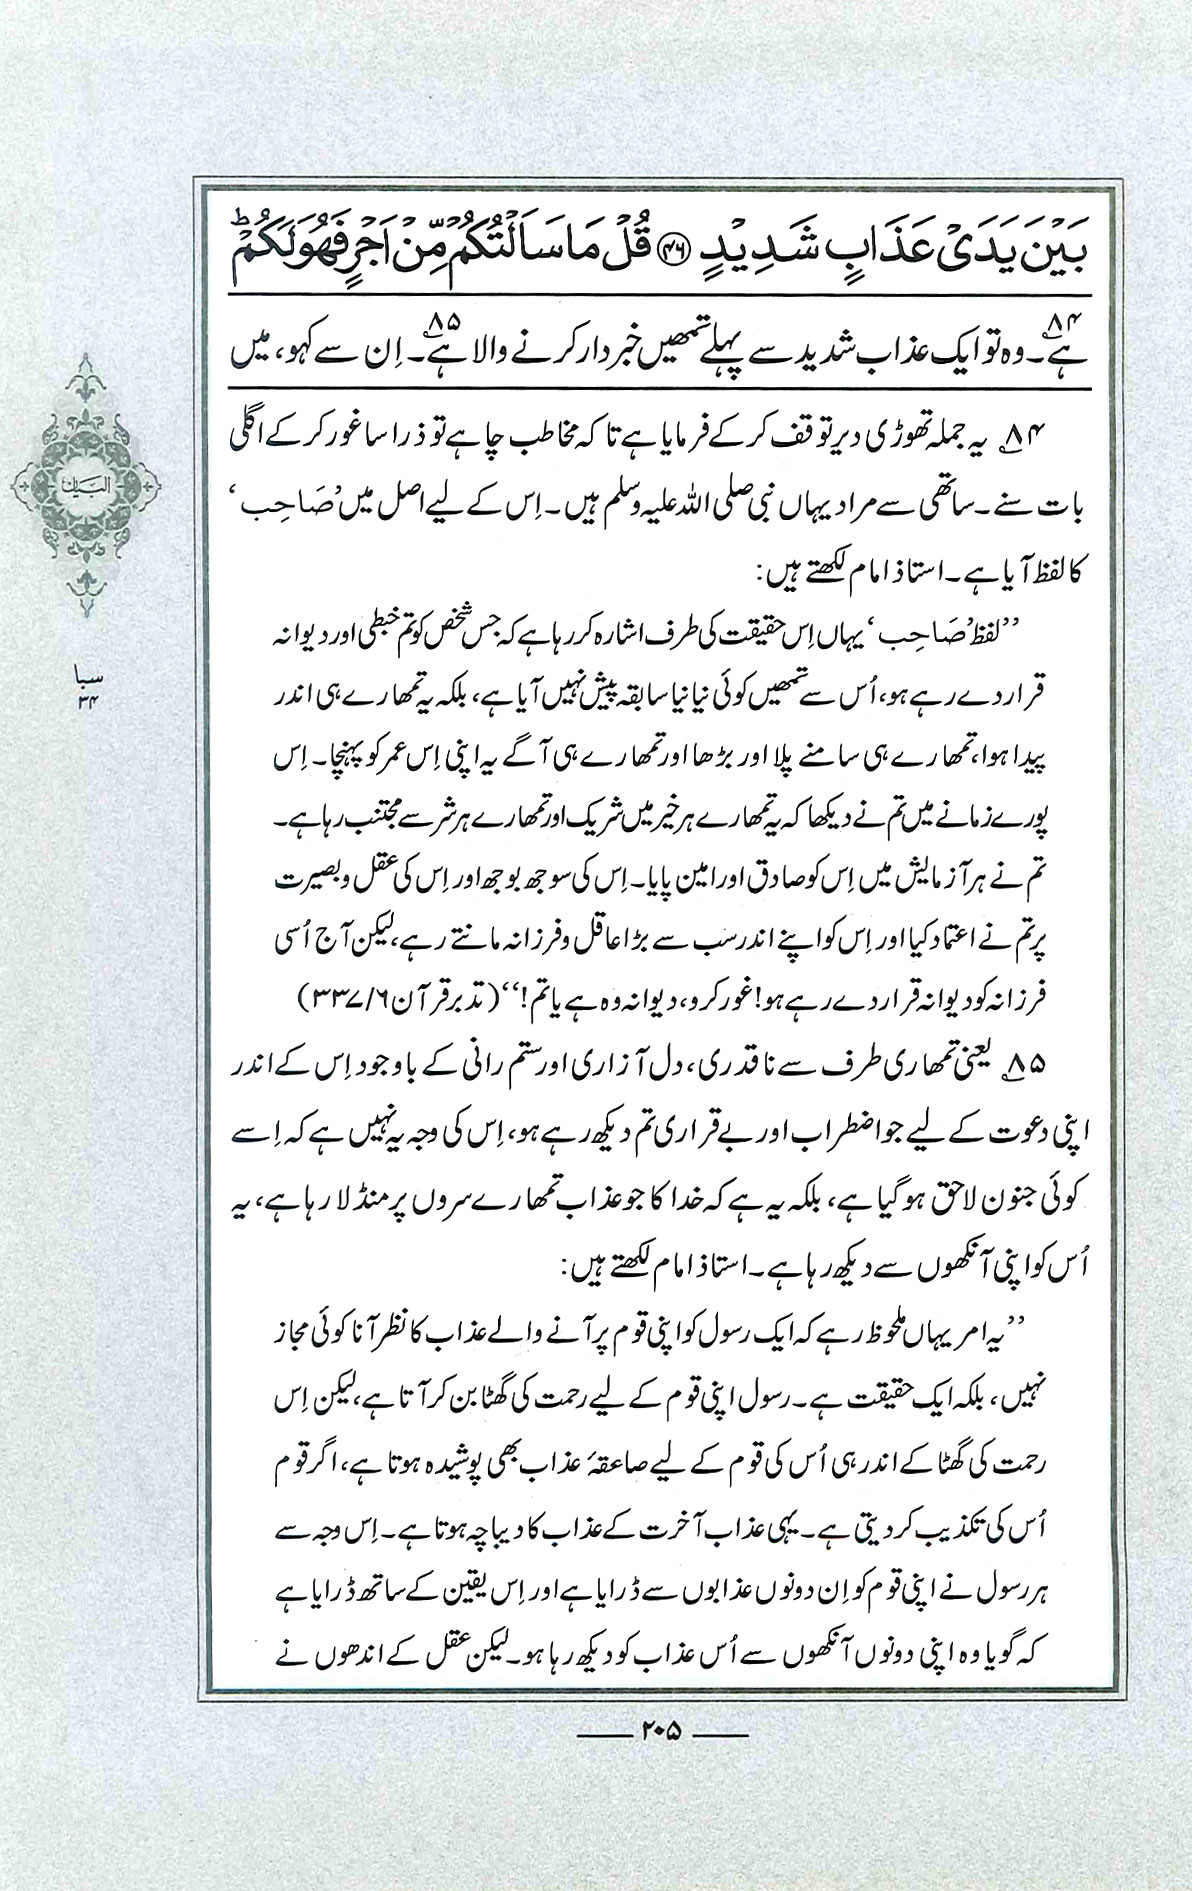 بَيْنَ يَدَيْ عَذَابٍ شَدِيْدٍ ﴿۴۶﴾ قُلْ مَا سَاَلْتُكُمْ مِّنْ اَجْرٍ فَهُوَ لَكُمْ ؕ
ہے۔۸۴ وہ تو ایک عذاب شدید سے پہلے تمھیں خبردار کرنے والا ہے۔۸۵ اِن سے کہو، میں
۸۴ یہ جملہ تھوڑی دیر توقف کر کے فرمایا ہے تاکہ مخاطب چاہے تو ذرا سا غور کر کے اگلی
بات سنے۔ ساتھی سے مراد یہاں نبی صلی اللہ علیہ وسلم ہیں۔ اِس کے لیے اصل میں ’صَاحِب‘
کا لفظ آیا ہے۔ استاذ امام لکھتے ہیں:
’’لفظ ’صَاحِب‘ یہاں اِس حقیقت کی طرف اشارہ کر رہا ہے کہ جس شخص کو تم خبطی اور دیوانہ
قرار دے رہے ہو، اُس سے تمھیں کوئی نیا نیا سابقہ پیش نہیں آیا ہے، بلکہ یہ تمھارے ہی اندر
پیدا ہوا، تمھارے ہی سامنے پلا اور بڑھا اور تمھارے ہی آگے یہ اپنی اِس عمر کو پہنچا۔ اِس
پورے زمانے میں تم نے دیکھا کہ یہ تمھارے ہر خیر میں شریک اور تمھارے ہر شر سے مجتنب رہا ہے۔
تم نے ہر آزمایش میں اِس کو صادق اور امین پایا۔ اِس کی سوجھ بوجھ اور اِس کی عقل و بصیرت
پر تم نے اعتماد کیا اور اِس کو اپنے اندر سب سے بڑا عاقل و فرزانہ مانتے رہے، لیکن آج اُسی
فرزانہ کو دیوانہ قرار دے رہے ہو! غور کرو، دیوانہ وہ ہے یا تم!‘‘ (تدبر قرآن ۶/ ۳۳۷)
۸۵ یعنی تمھاری طرف سے ناقدری، دل آزاری اور ستم رانی کے باوجود اِس کے اندر
اپنی دعوت کے لیے جو اضطراب اور بے قراری تم دیکھ رہے ہو، اِس کی وجہ یہ نہیں ہے کہ اِسے
کوئی جنون لاحق ہو گیا ہے، بلکہ یہ ہے کہ خدا کا جو عذاب تمھارے سروں پر منڈلا رہا ہے، یہ
اُس کو اپنی آنکھوں سے دیکھ رہا ہے۔ استاذ امام لکھتے ہیں:
’’یہ امر یہاں ملحوظ رہے کہ ایک رسول کو اپنی قوم پر آنے والے عذاب کا نظر آنا کوئی مجاز
نہیں، بلکہ ایک حقیقت ہے۔ رسول اپنی قوم کے لیے رحمت کی گھٹا بن کر آتا ہے، لیکن اِس
رحمت کی گھٹا کے اندر ہی اُس کی قوم کے لیے صاعقۂ عذاب بھی پوشیدہ ہوتا ہے، اگر قوم
اُس کی تکذیب کر دیتی ہے۔ یہی عذاب آخرت کے عذاب کا دیباچہ ہوتا ہے۔ اِس وجہ سے
ہر رسول نے اپنی قوم کو اِن دونوں عذابوں سے ڈرایا ہے اور اِس یقین کے ساتھ ڈرایا ہے
کہ گویا وہ اپنی دونوں آنکھوں سے اُس عذاب کو دیکھ رہا ہو۔ لیکن عقل کے اندھوں نے
البیان
سبا
۳۴
۲۰۵